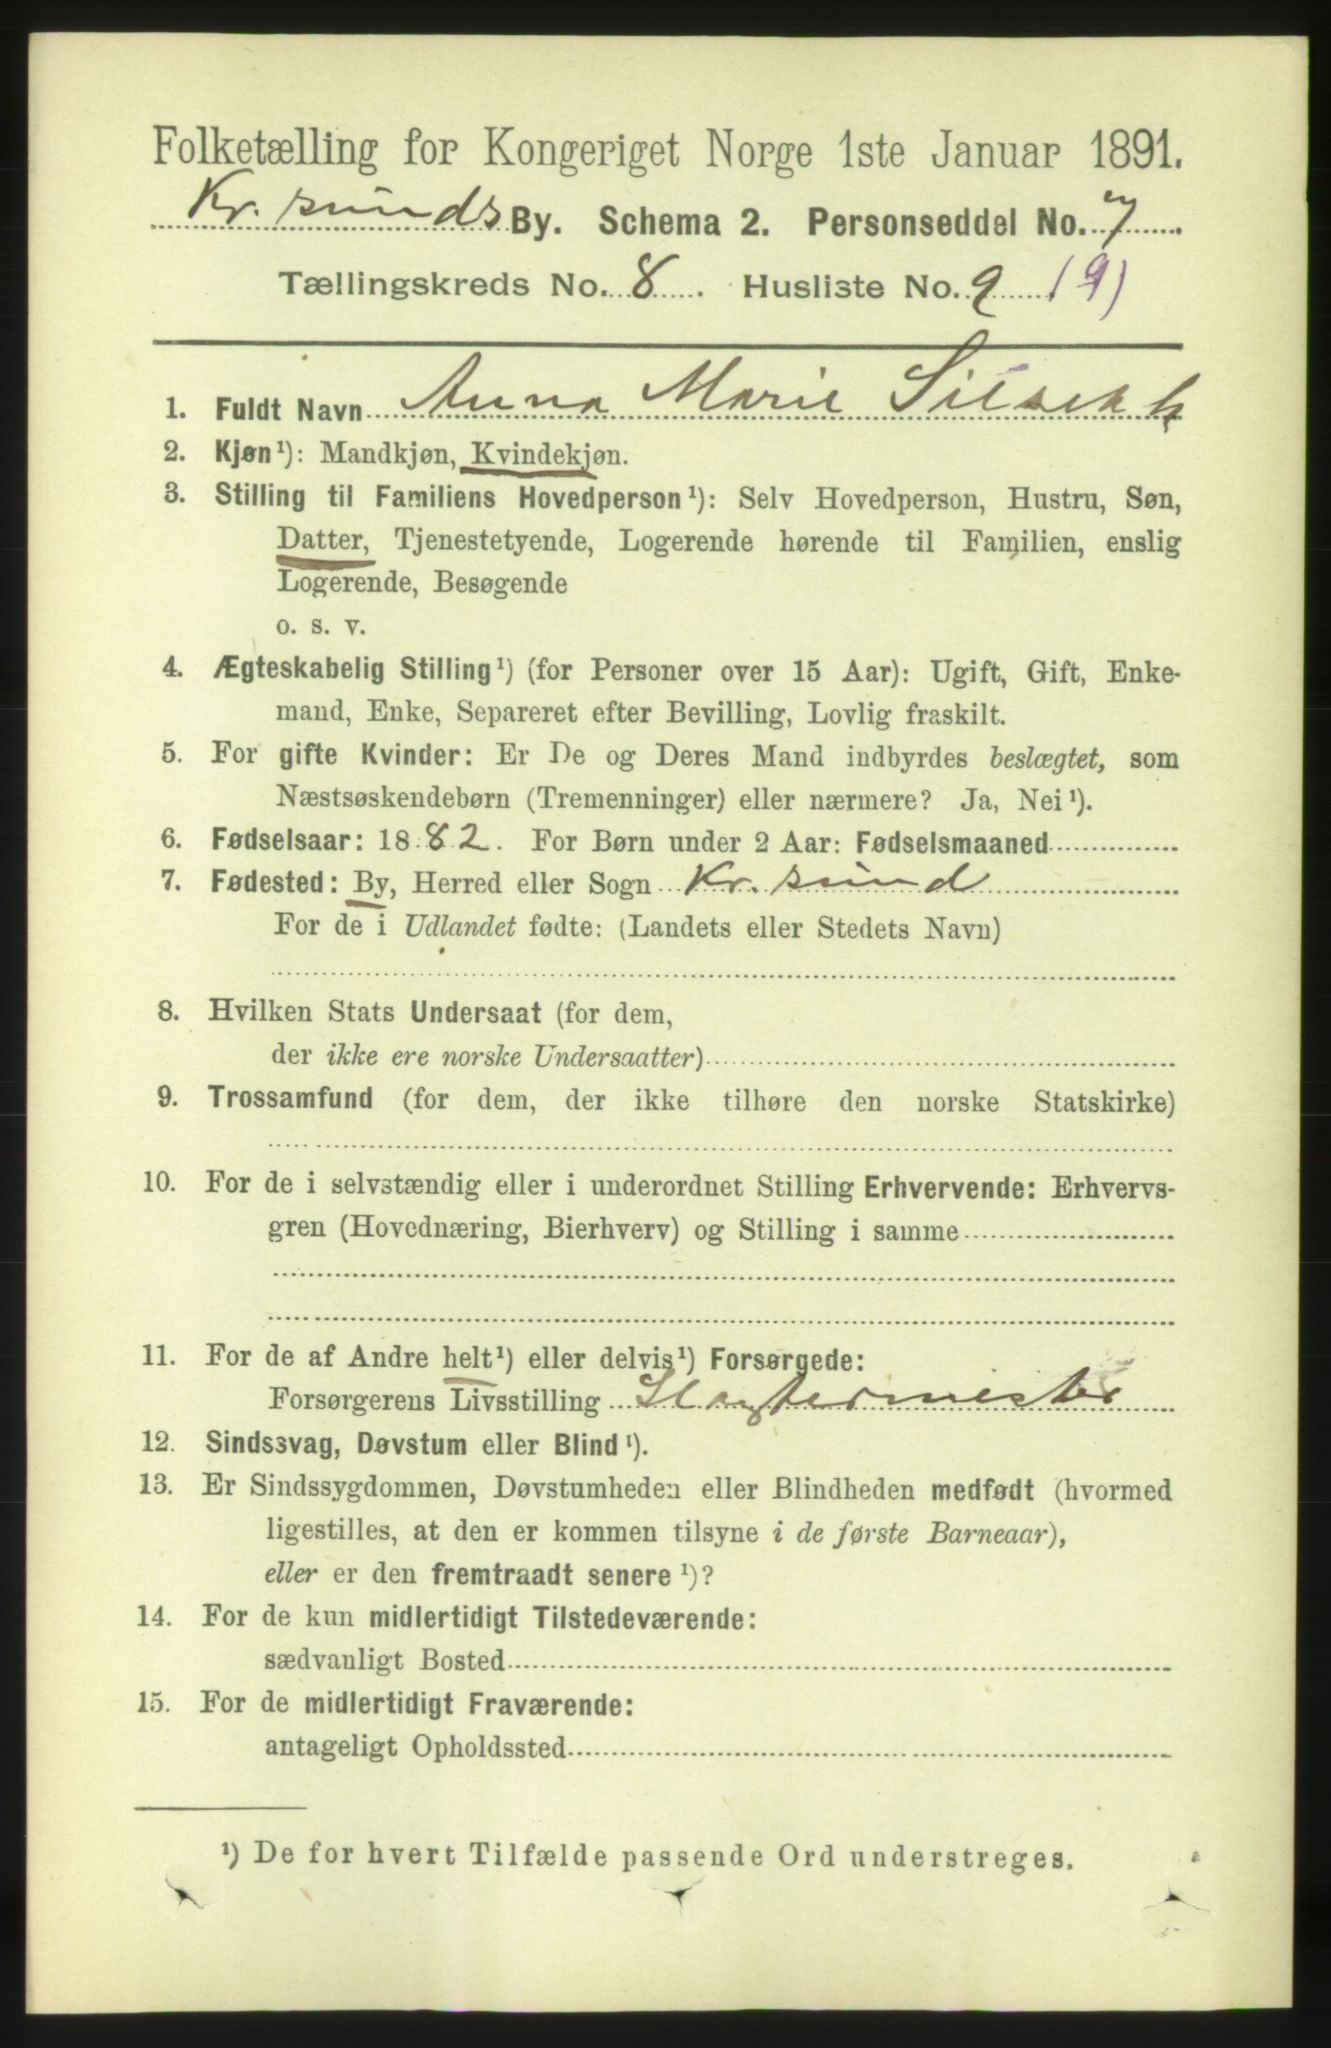 Folketælling for Kongeriget Norge 1ste Januar 1891.
Kr. sunds By. Schema 2. Personseddel No. 7
Tællingskreds No. 8. Husliste No. 9 (9)
1. Fuldt Navn Anna Marie
2. Kjøn¹): Mandkjøn, Kvindekjøn.
3. Stilling til Familiens Hovedperson¹): Selv Hovedperson, Hustru, Søn,
Datter, Tjenestetyende, Logerende hørende til Familien, enslig
Logerende, Besøgende
o. s. v.
4. Ægteskabelig Stilling¹) (for Personer over 15 Aar): Ugift, Gift, Enke-
mand, Enke, Separeret efter Bevilling, Lovlig fraskilt.
5. For gifte Kvinder: Er De og Deres Mand indbyrdes beslægtet, som
Næstsøskendebørn (Tremenninger) eller nærmere? Ja, Nei¹).
6. Fødselsaar: 1882. For Børn under 2 Aar: Fødselsmaaned
7. Fødested: By, Herred eller Sogn Kr. sund
For de i Udlandet fødte: (Landets eller Stedets Navn)
8. Hvilken Stats Undersaat (for dem,
der ikke ere norske Undersaatter)
9. Trossamfund (for dem, der ikke tilhøre den norske Statskirke)
10. For de i selvstændig eller i underordnet Stilling Erhvervende: Erhvervs-
gren (Hovednæring, Bierhverv) og Stilling i samme
11. For de af Andre helt¹) eller delvis¹) Forsørgede:
Forsørgerens Livsstilling Slagtermester
12. Sindssvag, Døvstum eller Blind¹).
13. Er Sindssygdommen, Døvstumheden eller Blindheden medfødt (hvormed
ligestilles, at den er kommen tilsyne i de første Barneaar),
eller er den fremtraadt senere¹)?
14. For de kun midlertidigt Tilstedeværende:
sædvanligt Bosted
15. For de midlertidigt Fraværende:
antageligt Opholdssted
¹) De for hvert Tilfælde passende Ord understreges.